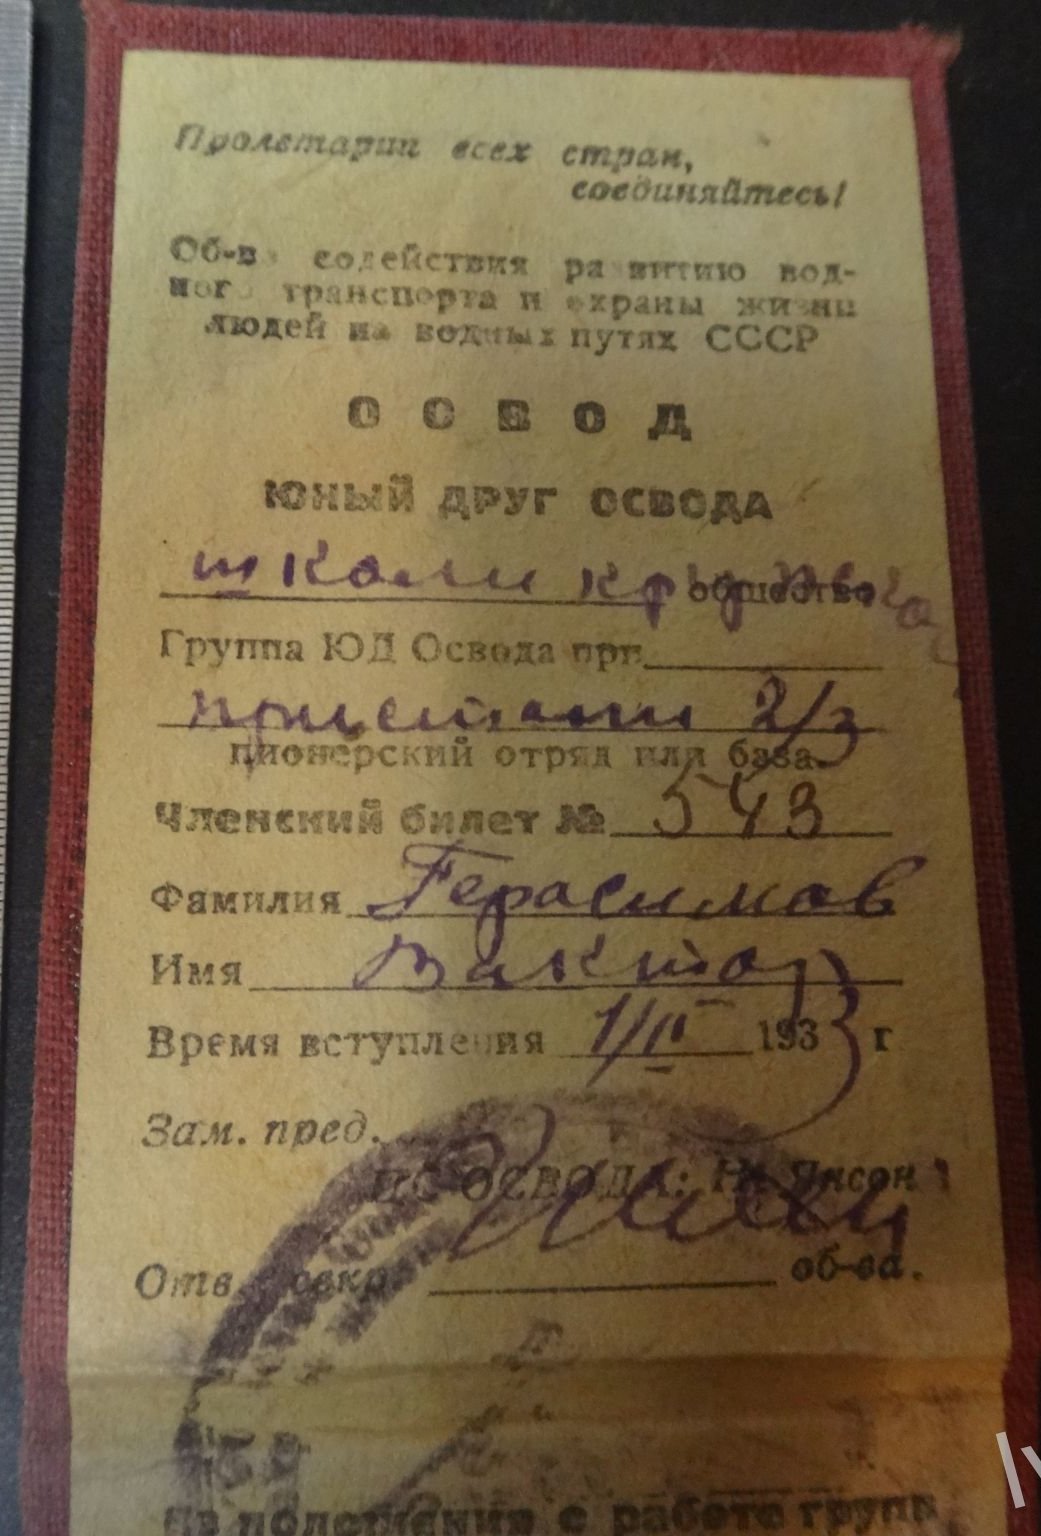 Пролетарии всех стран,
соединяйтесь!
Об-во содействия развитию вод-
ного транспорта и охраны жизни
людей на водных путях СССР
ОСВОД
ЮНЫЙ ДРУГ ОСВОДА
общество
Группа ЮД Освода при
пристани 2/3
пионерский отряд или база.
Членский билет № 543
Фамилия Герасимов
Имя Виктор
Время вступления 1/II 1933 г
Зам. пред.
ЦС ОСВОДА: Н. Янсон
Отв. секр. об-ва.
из положения о работе групп